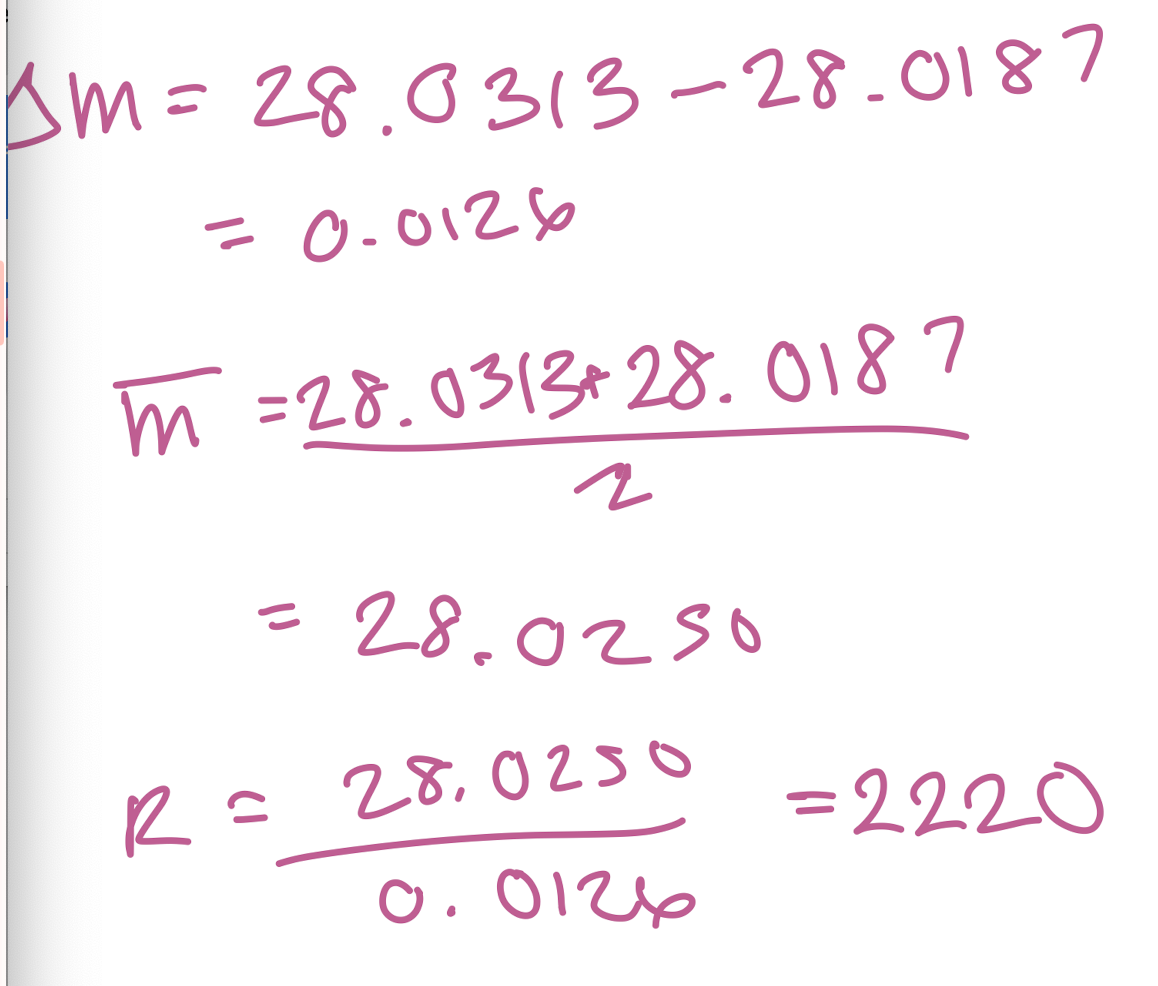 Δm = 28.0313 - 28.0187
= 0.0126
m̅ = 28.0313 + 28.0187
2
= 28.0250
R = 28.0250 = 2220
0.0126